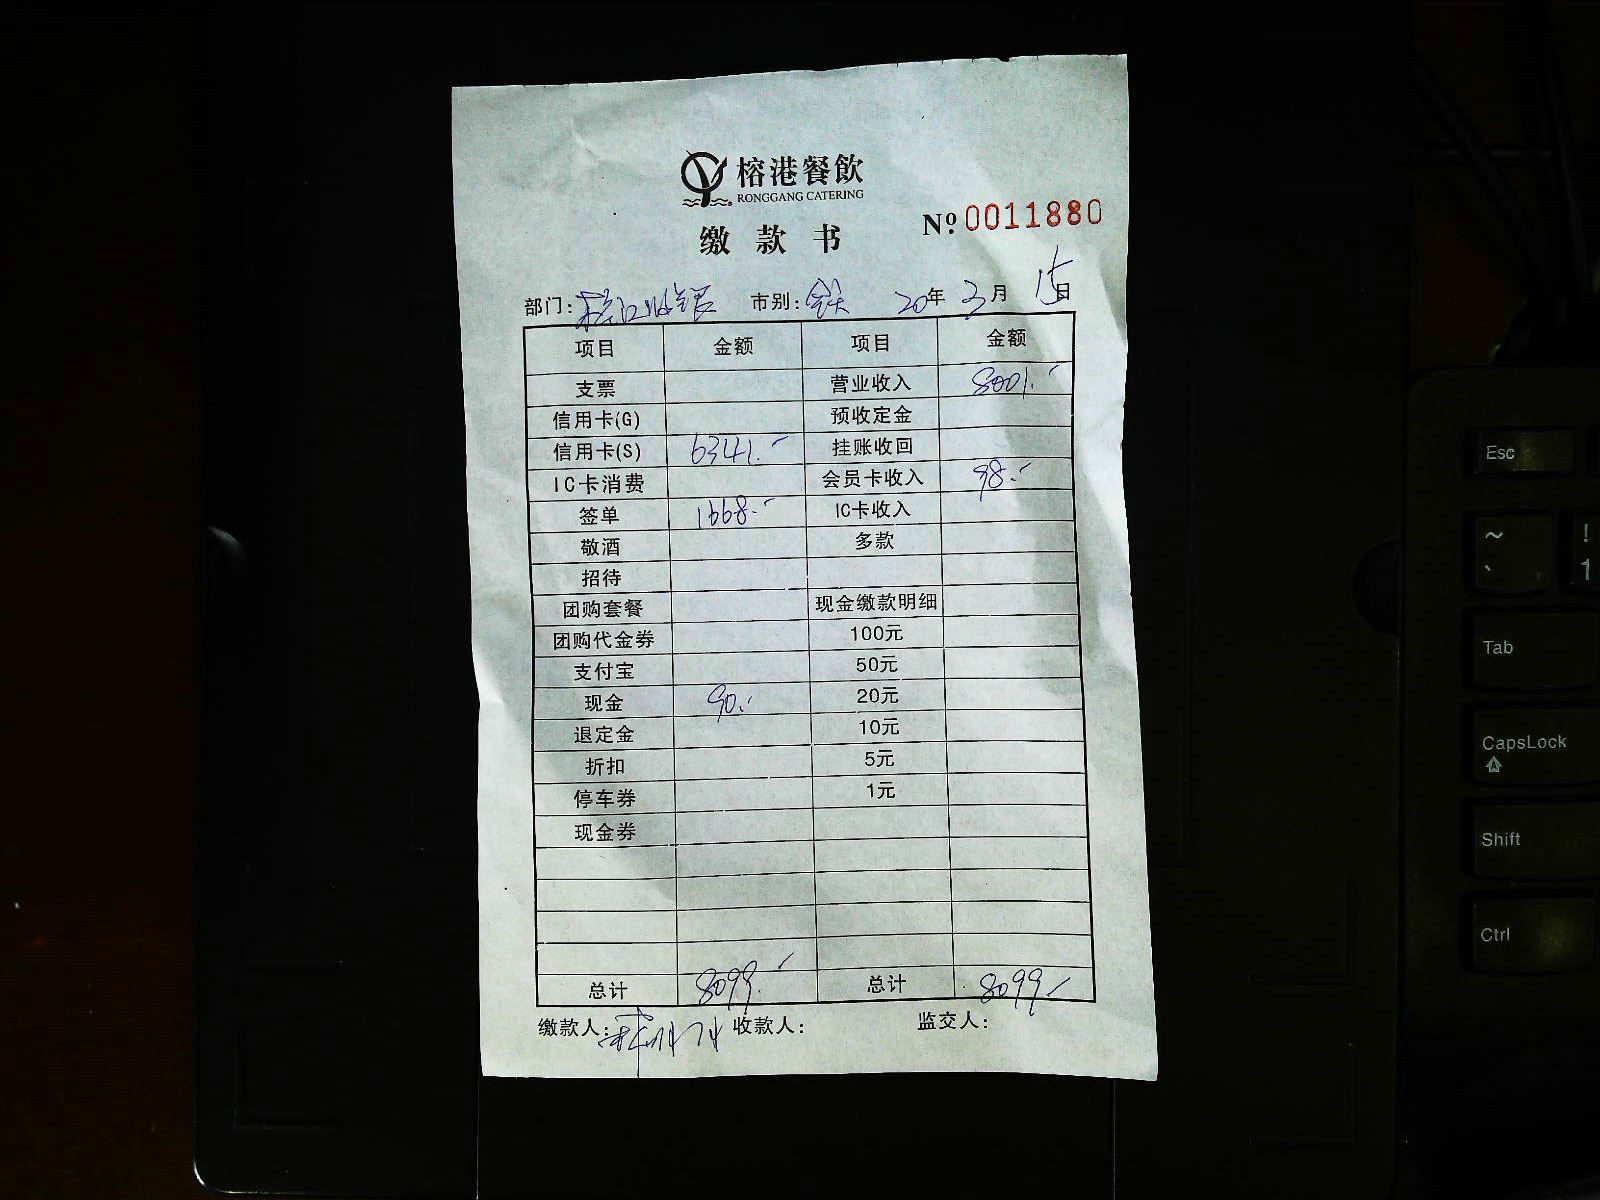 榕港餐飲
RONGGANG CATERING
缴款书
Nº.0011880
部门: 收银 市别: 全天 20年 3月 15日
项目 金额 项目 金额
支票 营业收入 8001.-
信用卡(G) 预收定金
信用卡(S) 6341.- 挂账收回
IC卡消费 会员卡收入 98.-
签单 1668.- IC卡收入
敬酒 多款
招待
团购套餐 现金缴款明细
团购代金券 100元
支付宝 50元
现金 90.- 20元
退定金 10元
折扣 5元
停车券 1元
现金券
总计 8099.- 总计 8099.-
缴款人: 收款人: 监交人:
Esc
~ !
、 1
Tab
CapsLock
Shift
Ctrl